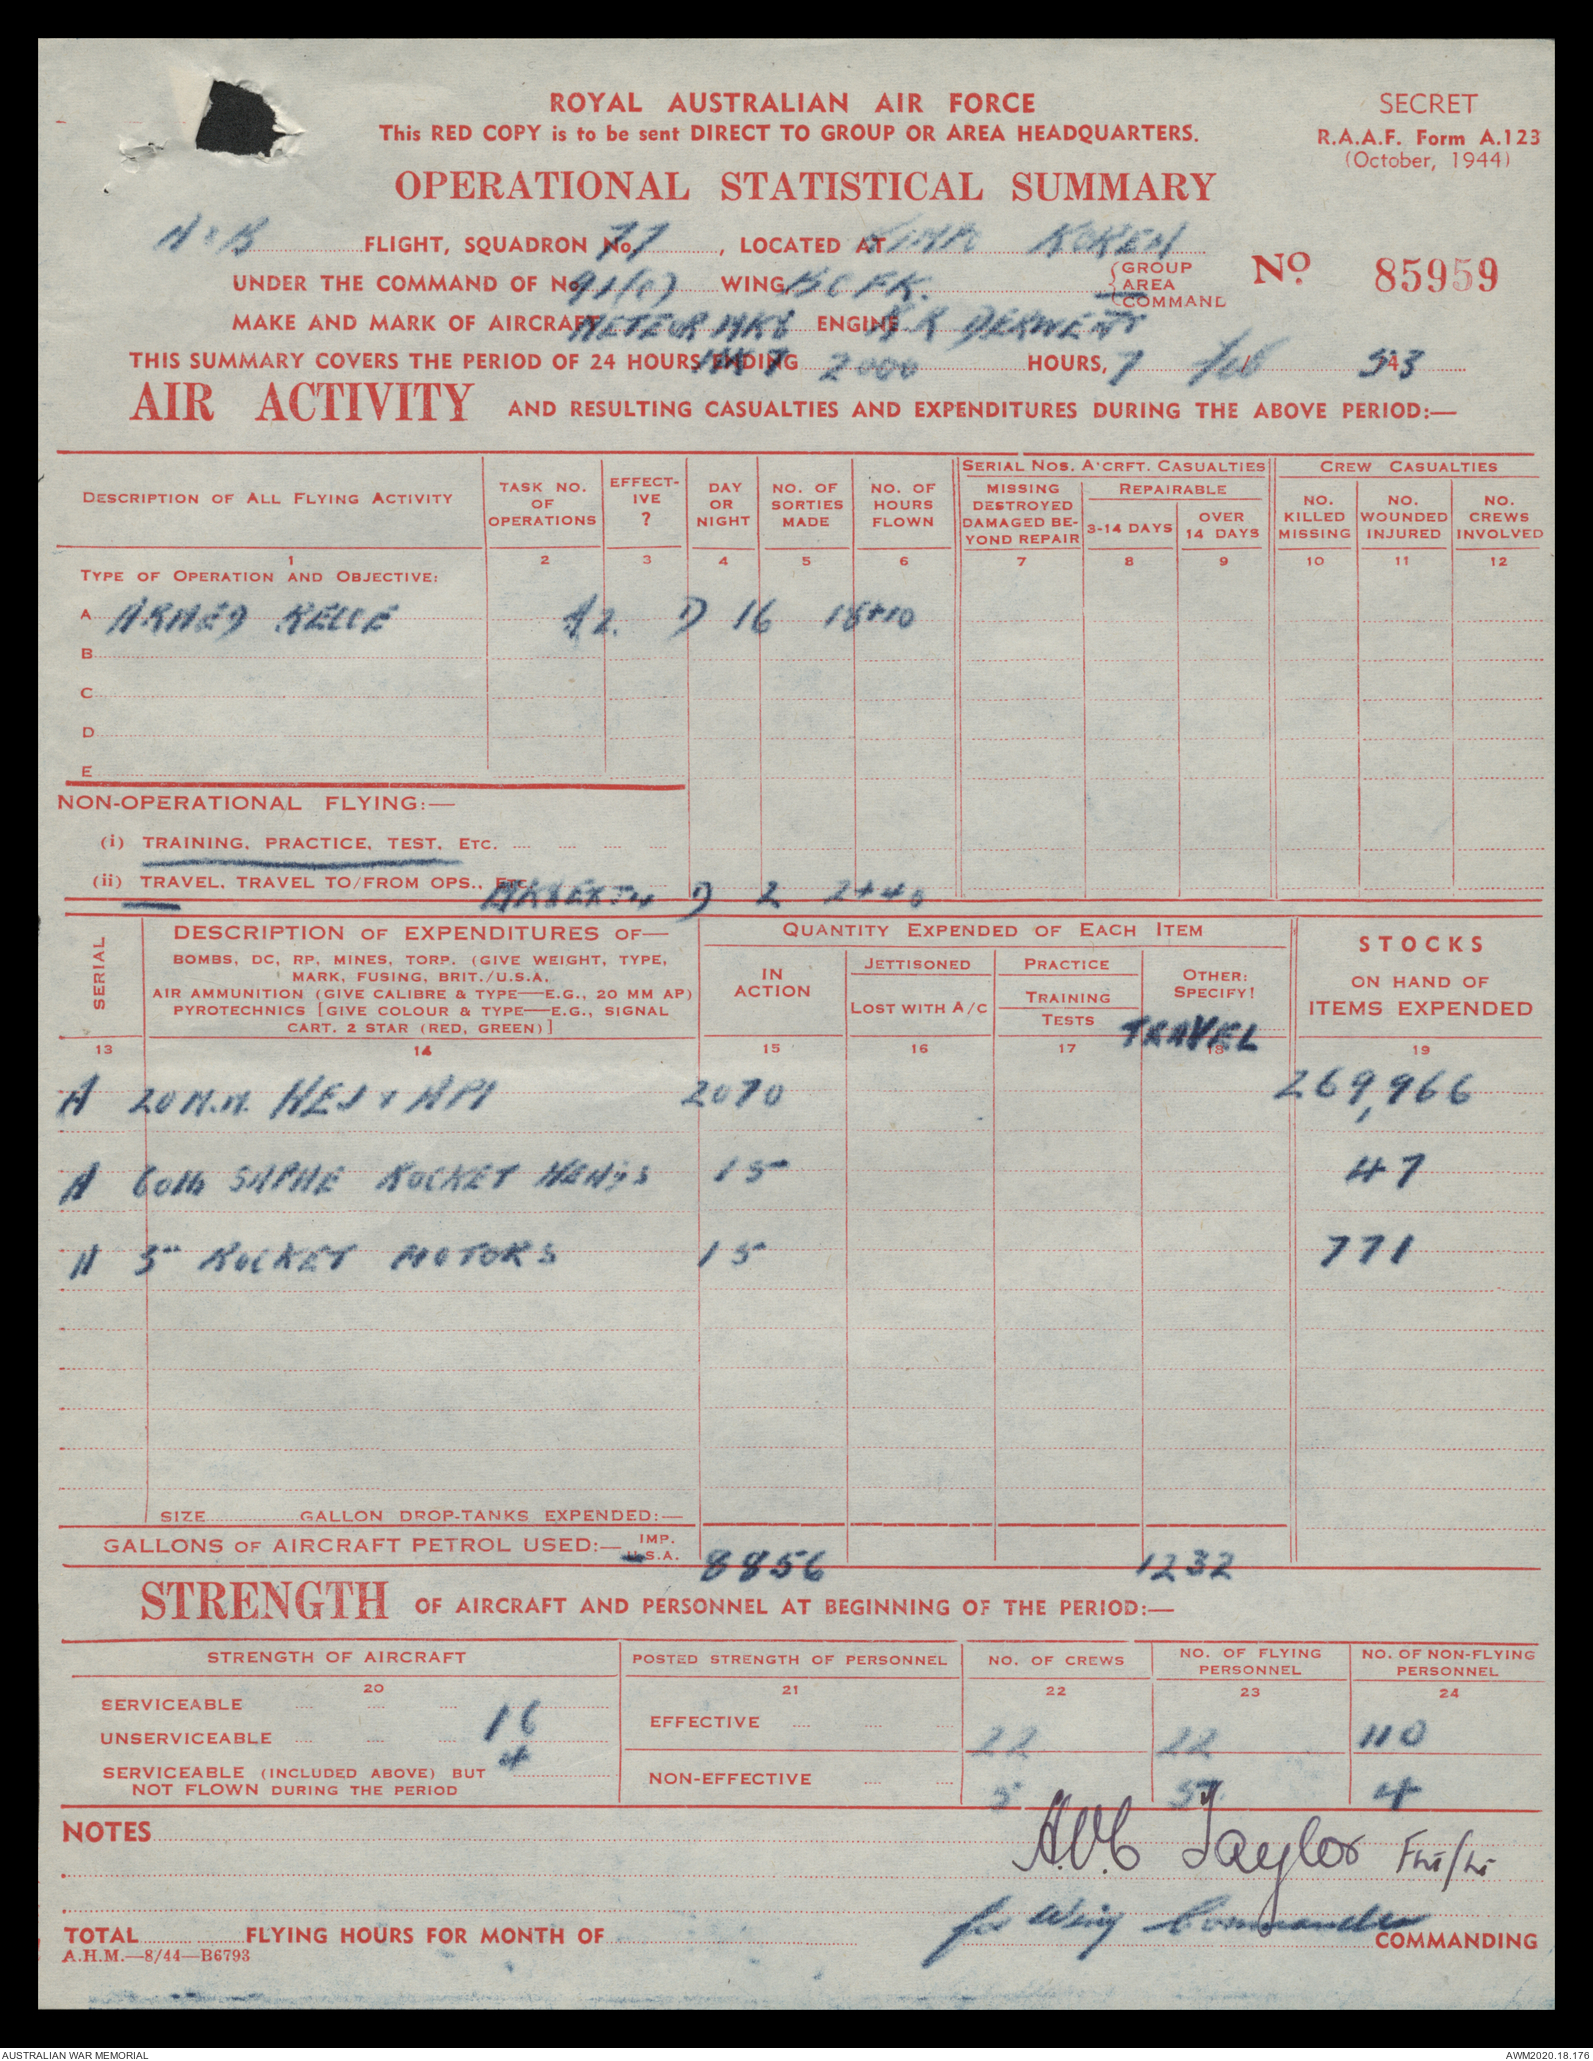 ROYAL AUSTRALIAN AIR FORCE
This RED COPY is to be sent DIRECT TO GROUP OR AREA HEADQUARTERS.
SECRET
R.A.A.F. Form A.123
(October, 1944)
OPERATIONAL STATISTICAL SUMMARY
A & B FLIGHT, SQUADRON No. 77, LOCATED AT KIMPO KOREA
UNDER THE COMMAND OF No. 91(C) WING, BCFK. GROUP AREA COMMAND
No. 85959
MAKE AND MARK OF AIRCRAFT METEOR MK8 ENGINE R R DERWENT
THIS SUMMARY COVERS THE PERIOD OF 24 HOURS ENDING 2000 HOURS, 7 Feb 53
AIR ACTIVITY AND RESULTING CASUALTIES AND EXPENDITURES DURING THE ABOVE PERIOD:—
DESCRIPTION OF ALL FLYING ACTIVITY
TASK NO. OF OPERATIONS
EFFECTIVE ?
DAY OR NIGHT
NO. OF SORTIES MADE
NO. OF HOURS FLOWN
SERIAL NOS. A'CRFT. CASUALTIES
MISSING DESTROYED DAMAGED BEYOND REPAIR
REPAIRABLE
3-14 DAYS
OVER 14 DAYS
CREW CASUALTIES
NO. KILLED MISSING
NO. WOUNDED INJURED
NO. CREWS INVOLVED
1 2 3 4 5 6 7 8 9 10 11 12
TYPE OF OPERATION AND OBJECTIVE:
A ARMED RECCE D 16 18+10
B
C
D
E
NON-OPERATIONAL FLYING:—
(i) TRAINING, PRACTICE, TEST, ETC.
(ii) TRAVEL, TRAVEL TO/FROM OPS., ETC. D 2 2+40
SERIAL
DESCRIPTION OF EXPENDITURES OF—
BOMBS, DC, RP, MINES, TORP. (GIVE WEIGHT, TYPE,
MARK, FUSING, BRIT./U.S.A.
AIR AMMUNITION (GIVE CALIBRE & TYPE—E.G., 20 MM AP)
PYROTECHNICS [GIVE COLOUR & TYPE—E.G., SIGNAL
CART. 2 STAR (RED, GREEN)]
QUANTITY EXPENDED OF EACH ITEM
IN ACTION
JETTISONED
LOST WITH A/C
PRACTICE
TRAINING
TESTS
OTHER: SPECIFY!
TRAVEL
STOCKS
ON HAND OF
ITEMS EXPENDED
13 14 15 16 17 18 19
A 20 M.M. HEI & API 2070 269,966
A 60lb SAPHE ROCKET HEADS 15 47
A 3" ROCKET MOTORS 15 771
SIZE GALLON DROP-TANKS EXPENDED:—
GALLONS OF AIRCRAFT PETROL USED:— IMP. U.S.A. 8856 1232
STRENGTH OF AIRCRAFT AND PERSONNEL AT BEGINNING OF THE PERIOD:—
STRENGTH OF AIRCRAFT
POSTED STRENGTH OF PERSONNEL
NO. OF CREWS
NO. OF FLYING PERSONNEL
NO. OF NON-FLYING PERSONNEL
20 21 22 23 24
SERVICEABLE 16
UNSERVICEABLE 4
SERVICEABLE (INCLUDED ABOVE) BUT
NOT FLOWN DURING THE PERIOD
EFFECTIVE 22 22 110
NON-EFFECTIVE 5 5 4
NOTES
A.V.C Taylor Flt/Lt
for Wing Commander
TOTAL FLYING HOURS FOR MONTH OF COMMANDING
A.H.M.—8/44—B6793
AUSTRALIAN WAR MEMORIAL
AWM2020.18.176